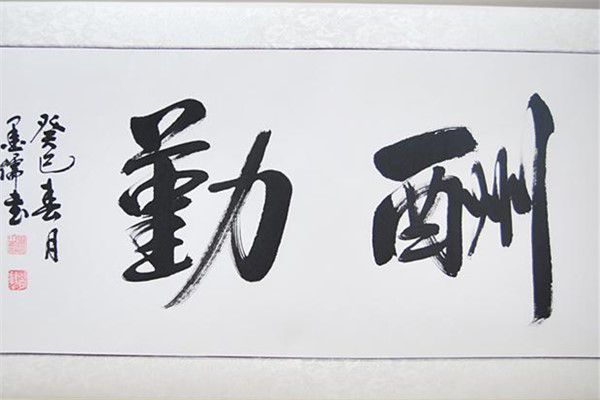 酬勤
癸巳春月
墨儒书